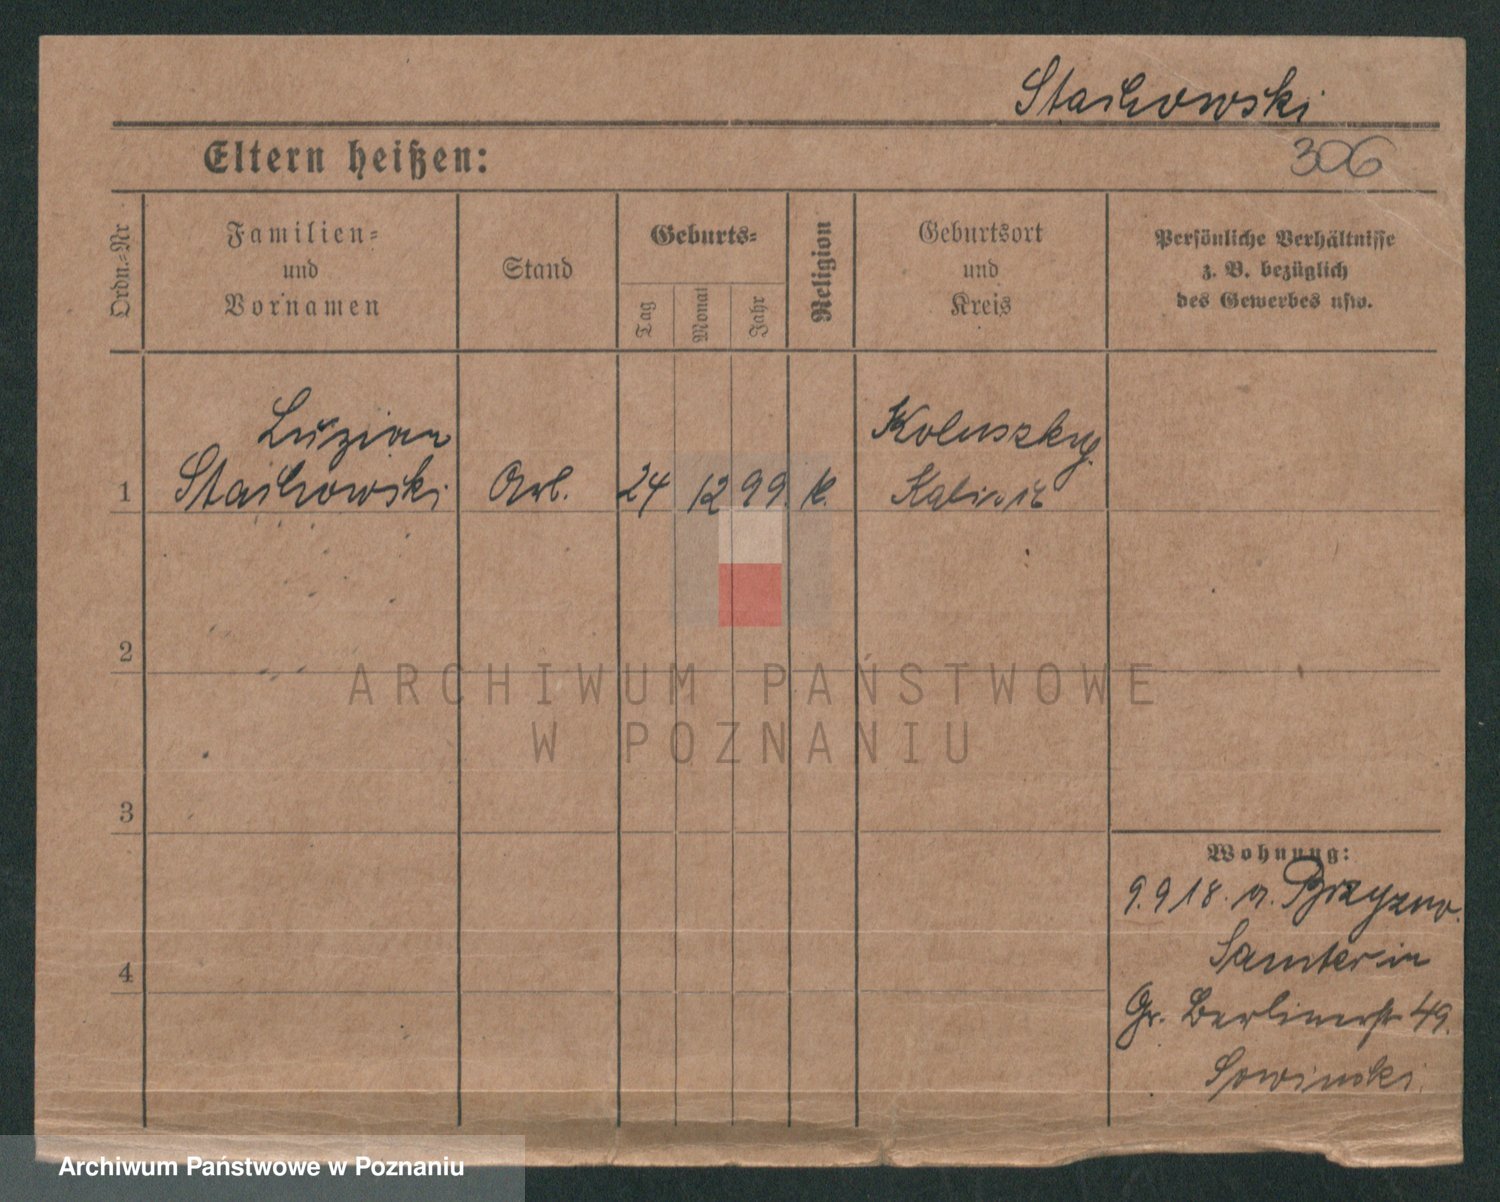 Stachowski
Eltern heißen:
306
Ordn.-Nr
Familien-
und
Vornamen
Stand
Geburts-
Tag
Monat
Jahr
Religion
Geburtsort
und
Kreis
Persönliche Verhältnisse
z. B. bezüglich
des Gewerbes usw.
Luzian
Koluszky
1 Stachowski Arb. 24 12 99. k.
2
ARCHIWUM PAŃSTWOWE
W POZNANIU
3
Wohnung:
9.9 18. a.
Samter in
4
Gr. Berlinerstr 49.
Sowinski.
Archiwum Państwowe w Poznaniu